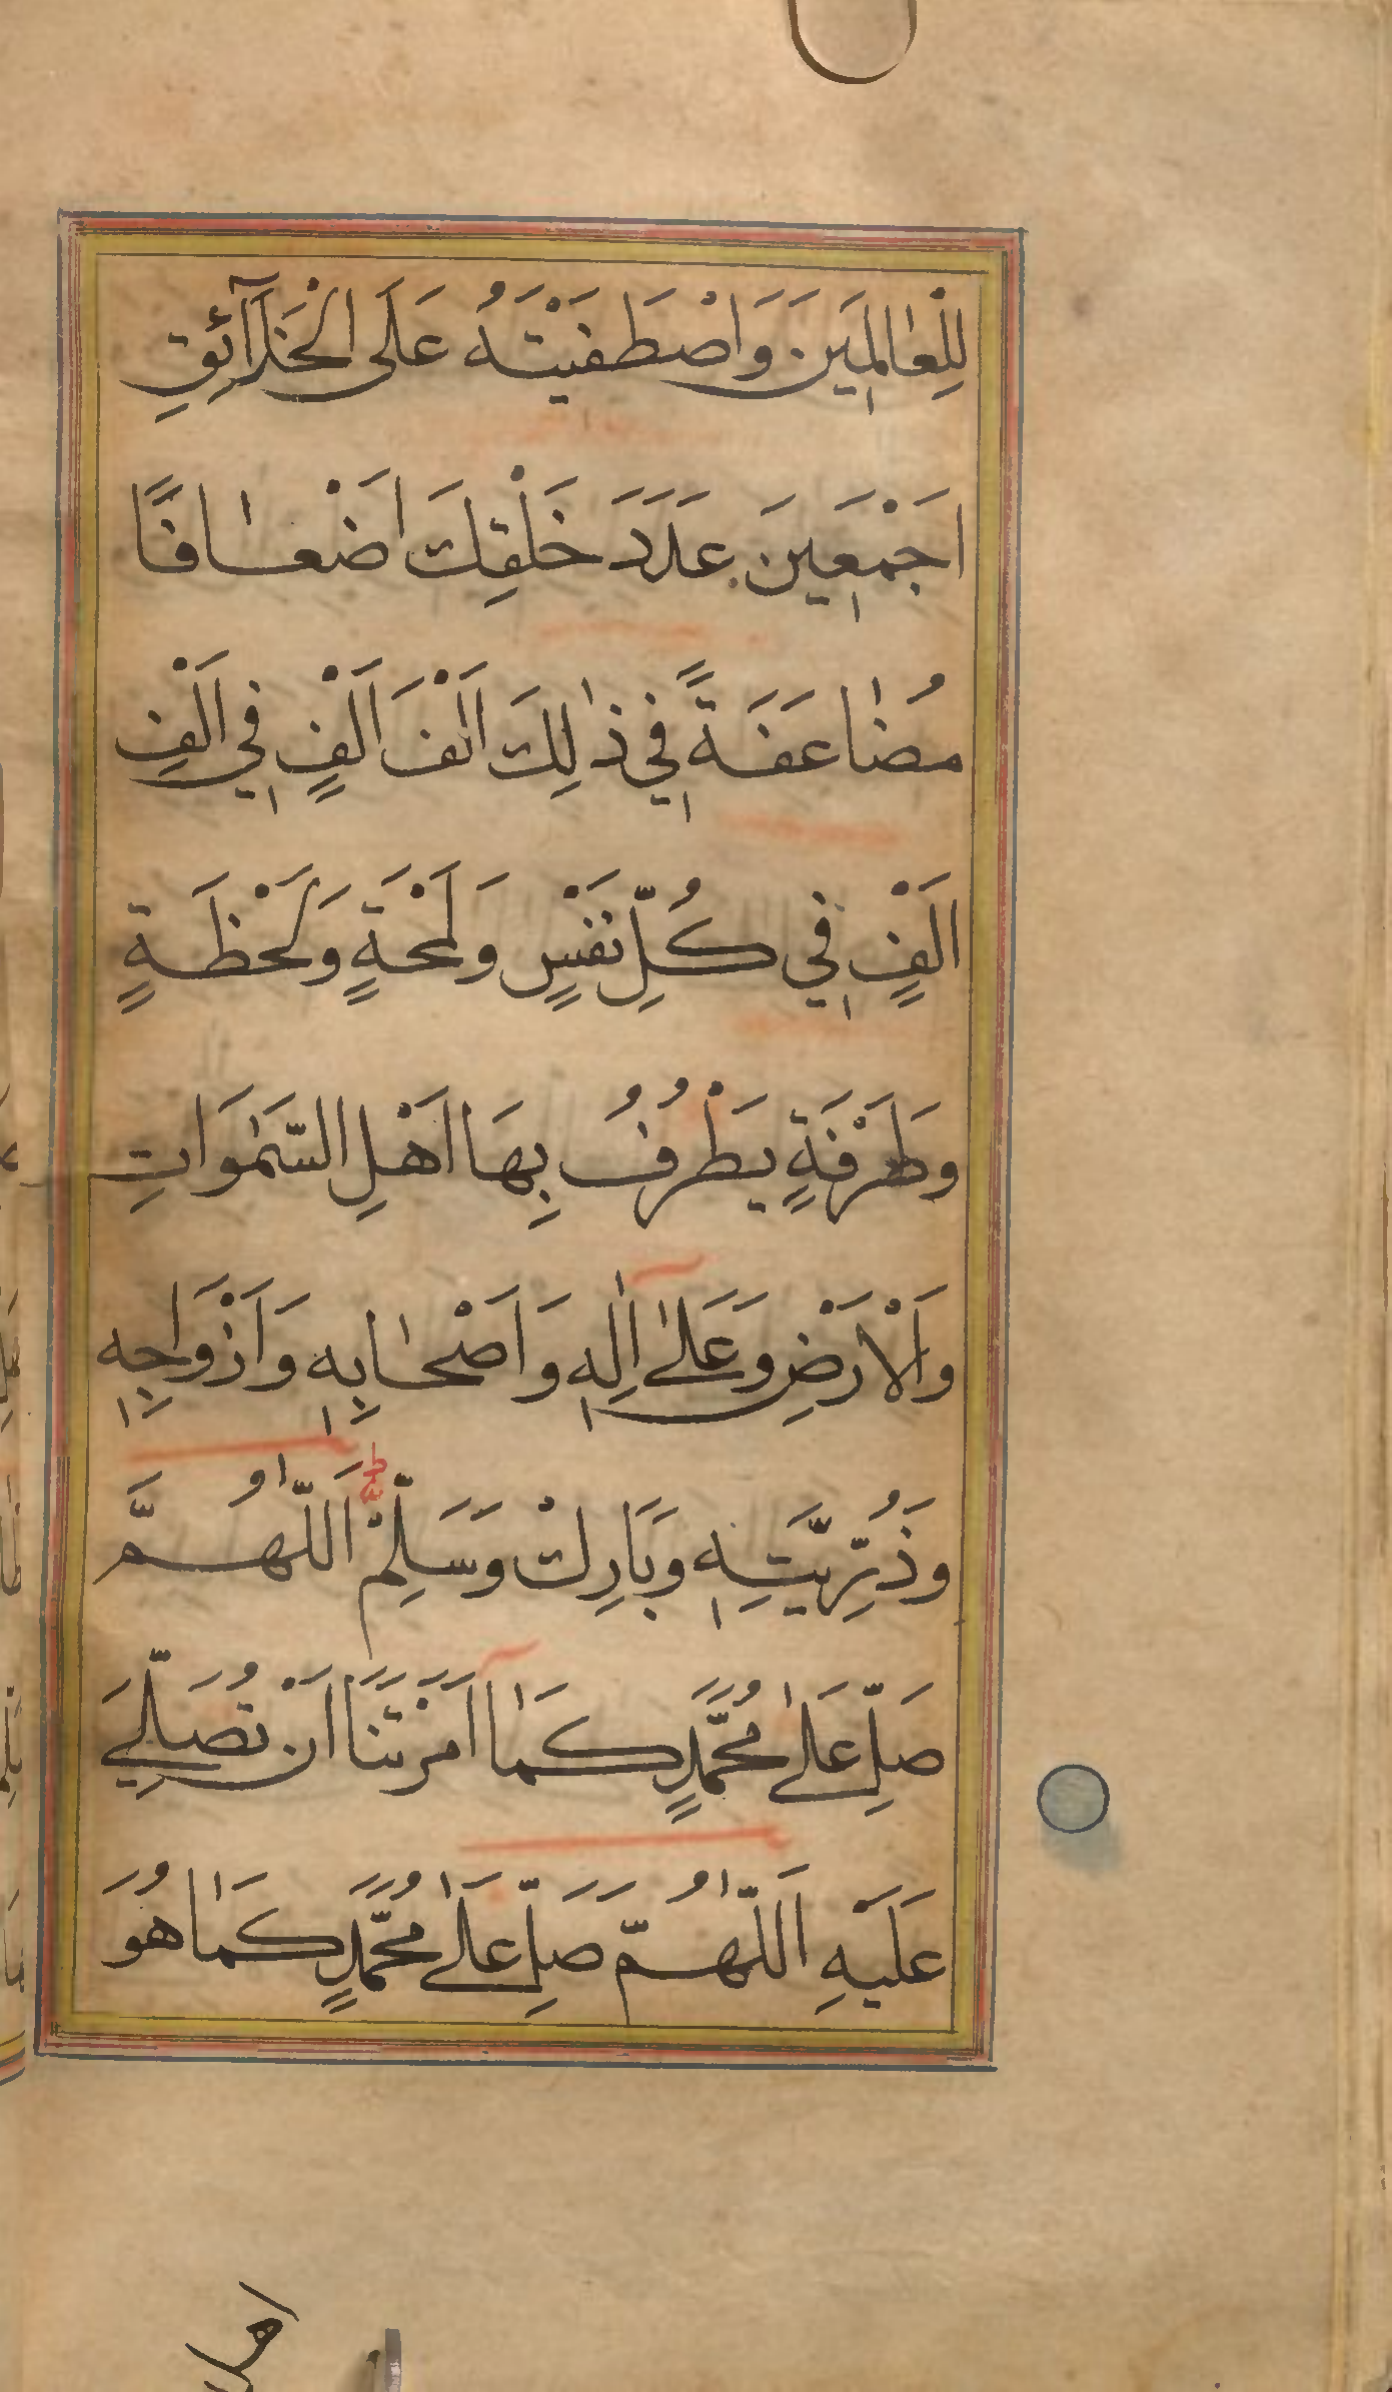 لِلْعٰالَمِيَن وَاصْطَفَيْتَهُ عَلَى الْخَلَآئِقِ
اَجْمَعِينَ عَدَدَ خَلْقِكَ اَضْعٰافًا
مُضٰاعَفَةً فِي ذٰلِكَ اَلْفَ اَلْفٍ فِي اَلْفِ
اَلْفٍ فِي كُلِّ نَفْسٍ وَلَمْحَةٍ وَلَحْظَةٍ
وَطَرْفَةٍ يَطْرُفُ بِهَا اَهْلِ السَّمٰوَاتِ
وَالْاَرْضِ وَعَلٰى اٰلِهِ وَاَصْحٰابِهِ وَاَزْوَاجِهِ
وَذُرِّيَّتِهِ وَبَارِكْ وَسَلِّمْ اَللّٰهُمَّ
صَلِّ عَلٰى مُحَمَّدٍ كَمٰا اَمَرْتَنَا اَنْ نُصَلِّيَ
عَلَيْهِ اَللّٰهُمَّ صَلِّ عَلٰى مُحَمَّدٍ كَمٰا هُوَ